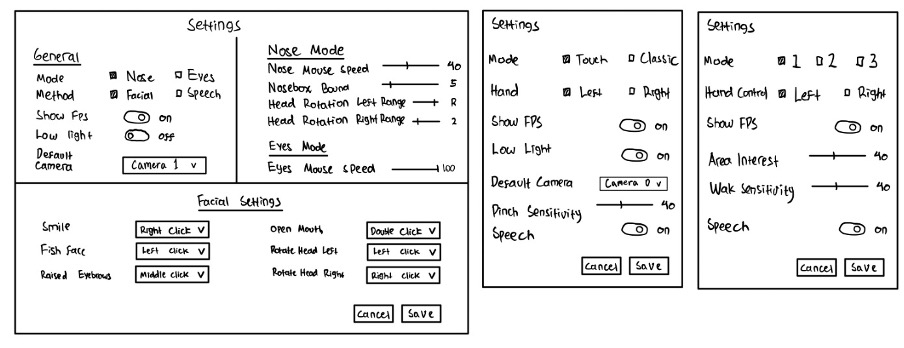 Settings
General
Mode Nose Eyes
Method Facial Speech
Show FPS on
Low light off
Default
Camera Camera 1 v
Nose Mode
Nose Mouse Speed 40
Nosebox Bound 5
Head Rotation Left Range
Head Rotation Right Range 2
Eyes Mode
Eyes Mouse Speed 100
Facial Settings
Smile Right Click V
Fish Face Left Click V
Raised Eyebrows Middle Click V
Open Mouth Double Click V
Rotate Head Left Left Click V
Rotate Head Right Right Click V
Cancel Save
Settings
Mode Touch Classic
Hand Left Right
Show FPS on
Low Light on
Default Camera Camera 0 v
Pinch Sensitivity 40
Speech on
Cancel Save
Settings
Mode 1 2 3
Hand Control Left Right
Show FPS on
Area Interest 40
Wak Sensitivity 40
Speech on
Cancel Save